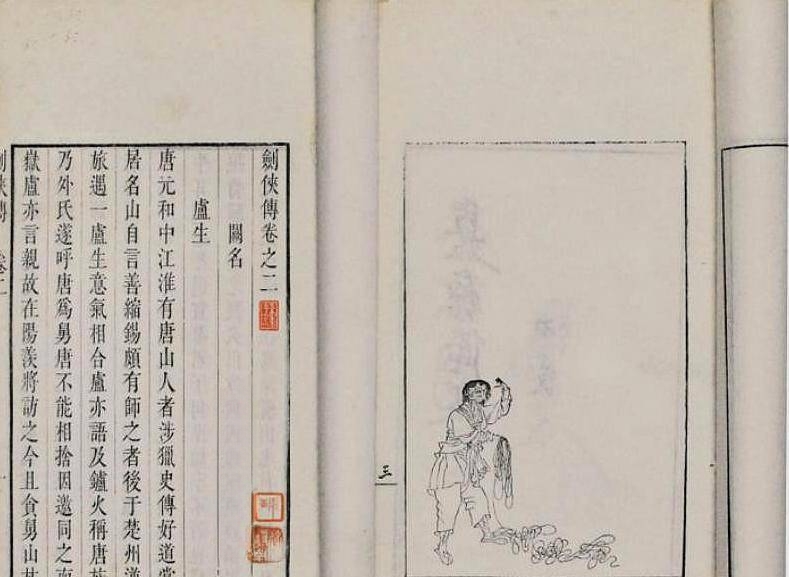 劍俠傳卷之二
闕名
盧生
唐元和中江淮有唐山人者涉獵史傳好道常
居名山自言善縮錫頗有師之者後于楚州逆
旅遇一盧生意氣相合盧亦語及鑪火稱唐族
乃外氏遂呼唐爲舅唐不能相捨因邀同之南
嶽盧亦言親故在陽羨將訪之今且貪舅山林
劍俠傳 卷二
三